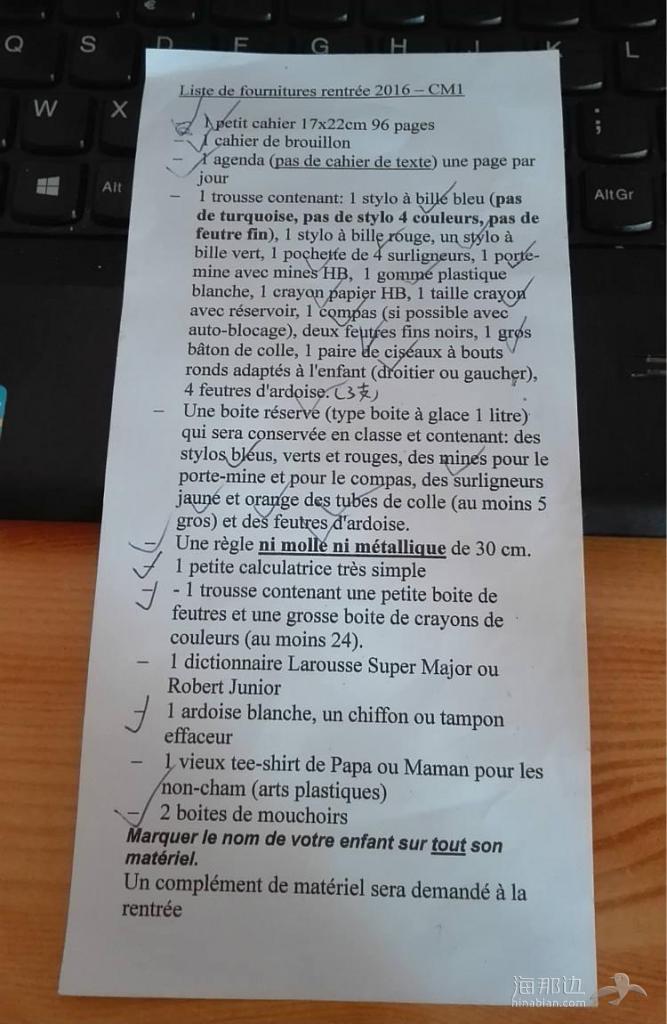 Q S D F G H J K L
W X ;
Alt AltGr
Liste de fournitures rentrée 2016 – CM1
1 petit cahier 17x22cm 96 pages
– 1 cahier de brouillon
– 1 agenda (pas de cahier de texte) une page par
jour
– 1 trousse contenant: 1 stylo à bille bleu (pas
de turquoise, pas de stylo 4 couleurs, pas de
feutre fin), 1 stylo à bille rouge, un stylo à
bille vert, 1 pochette de 4 surligneurs, 1 porte-
mine avec mines HB, 1 gomme plastique
blanche, 1 crayon papier HB, 1 taille crayon
avec réservoir, 1 compas (si possible avec
auto-blocage), deux feutres fins noirs, 1 gros
bâton de colle, 1 paire de ciseaux à bouts
ronds adaptés à l'enfant (droitier ou gaucher),
4 feutres d'ardoise. (3支)
– Une boite réserve (type boite à glace 1 litre)
qui sera conservée en classe et contenant: des
stylos bleus, verts et rouges, des mines pour le
porte-mine et pour le compas, des surligneurs
jaune et orange des tubes de colle (au moins 5
gros) et des feutres d'ardoise.
– Une règle ni molle ni métallique de 30 cm.
– 1 petite calculatrice très simple
– - 1 trousse contenant une petite boite de
feutres et une grosse boite de crayons de
couleurs (au moins 24).
– 1 dictionnaire Larousse Super Major ou
Robert Junior
– 1 ardoise blanche, un chiffon ou tampon
effaceur
– 1 vieux tee-shirt de Papa ou Maman pour les
non-cham (arts plastiques)
– 2 boites de mouchoirs
Marquer le nom de votre enfant sur tout son
matériel.
Un complément de matériel sera demandé à la
rentrée
海那边
hinabian.com